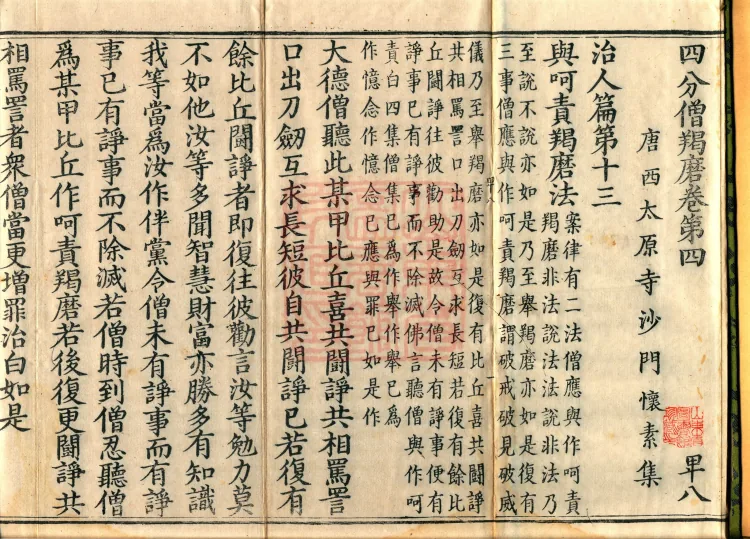 四分僧羯磨卷第四
八
唐西太原寺沙門懷素集
治人篇第十三
與呵責羯磨法
案律有二法僧應與作呵責
羯磨非法說法法說非法乃
至說不說亦如是乃至舉羯磨亦如是復有
三事僧應與作呵責羯磨謂破戒破見破威
儀乃至舉羯磨亦如是復有比丘喜共鬪諍
共相罵詈口出刀劒互求長短若復有餘比
丘鬪諍往彼勸助是故令僧未有諍事便有
諍事已有諍事而不除滅佛言聽僧與作呵
責白四集僧集已為作舉作舉已為
作憶念作憶念已應與罪已如是作
大德僧聽此某甲比丘喜共鬪諍共相罵詈
口出刀劒互求長短彼自共鬪諍已若復有
餘比丘鬪諍者即復往彼勸言汝等勉力莫
不如他汝等多聞智慧財富亦勝多有知識
我等當爲汝作伴黨令僧未有諍事而有諍
事已有諍事而不除滅若僧時到僧忍聽僧
爲某甲比丘作呵責羯磨若後復更鬪諍共
相罵詈者衆僧當更增罪治白如是